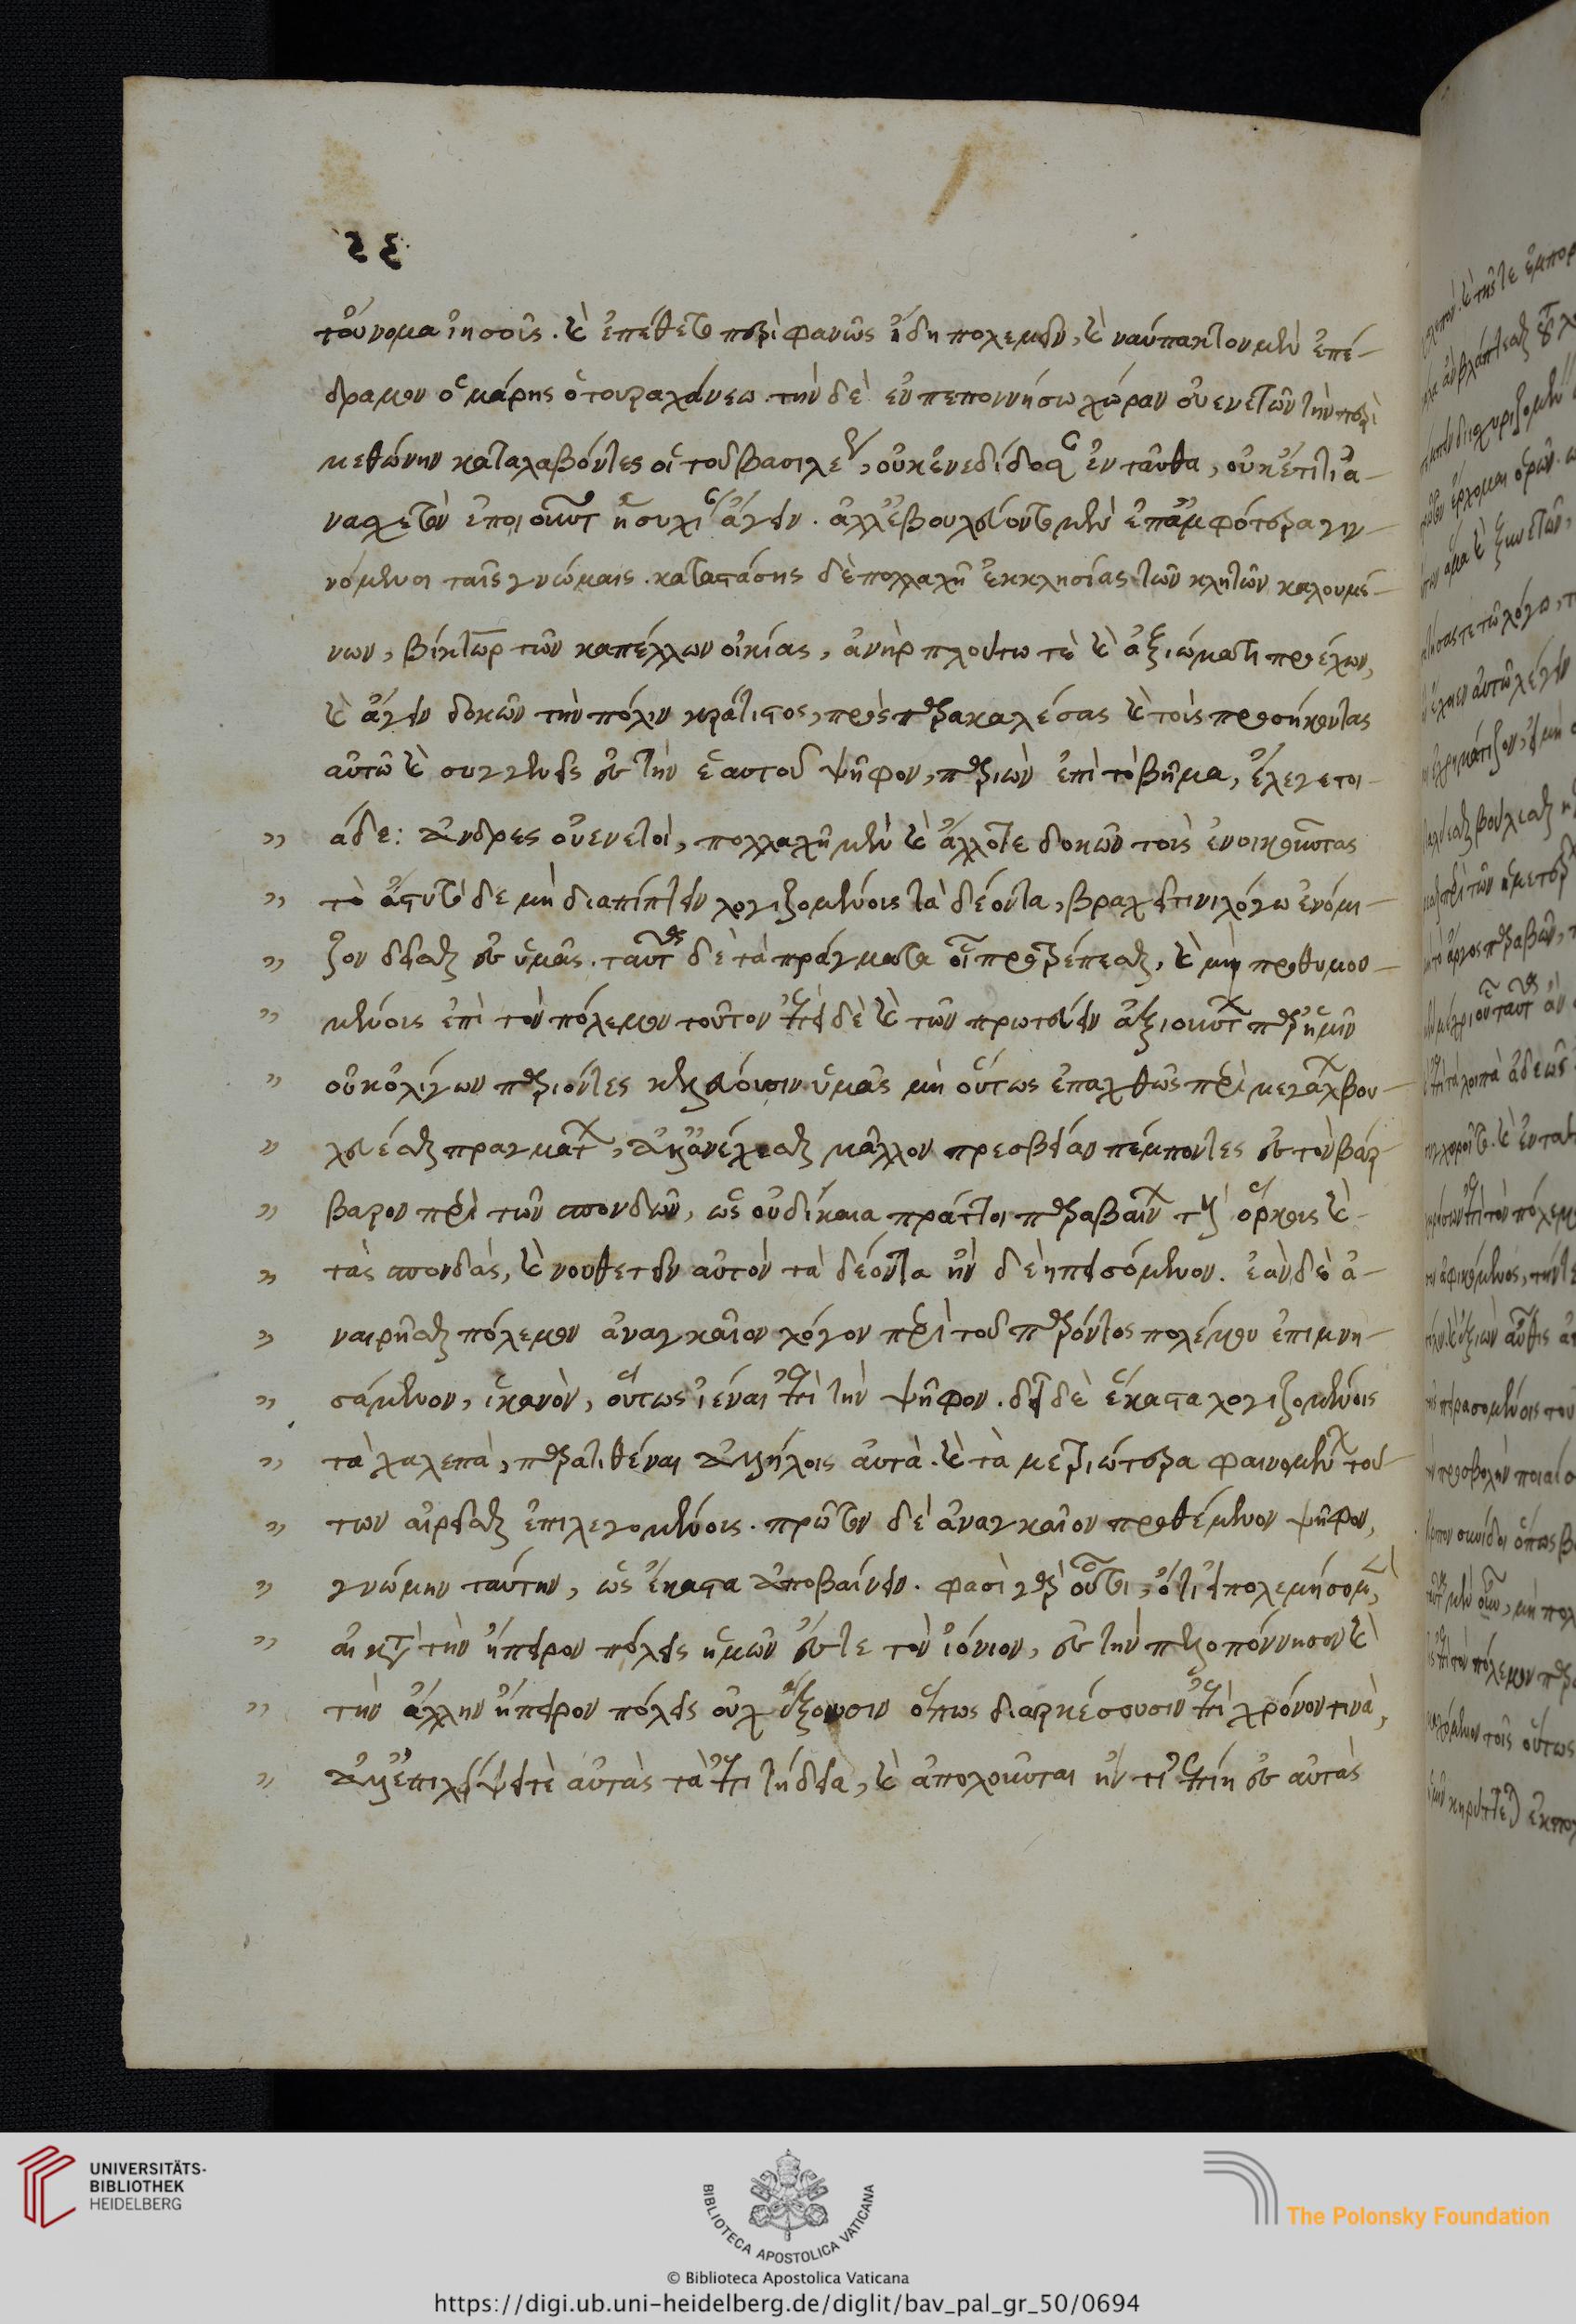 τοὔνομα ἰησοῦς. καὶ ἐπέθετο περιφανῶς ἤδη πολεμεῖν, καὶ ναύπακτον μὲν ἐπέ-
δραμεν ὁ μάρης ὁ τουραχάνεω. τὴν δὲ ἐν πεποννήσω χώραν οὐενετῶν τὴν περὶ
μεθώνην καταλαβόντες οἱ τοῦ βασιλέως, οὐκ ἐνεδίδοσαν ἐνταῦθα, οὐκέτι τι ἀ-
νασχετὸν ἐποιοῦντο ἡσυχίαν ἄγειν. ἀλλ' ἐβουλεύοντο μὲν ἐπ' ἀμφότερα γιν-
νόμενοι ταῖς γνώμαις. καταστάσης δὲ πολλαχῆ ἐκκλησίας τῶν κλητῶν καλουμέ-
νων, βίκτωρ τῶν καπέλλων οἰκίας, ἀνὴρ πλούτω τὲ καὶ ἀξιώματι προέχων,
καὶ ἄγειν δοκῶν τὴν πόλιν κράτιστος, παρακαλέσας καὶ τοὺς προσήκοντας
αὐτῶ καὶ συγγενεῖς ἐς τὴν ἑαυτοῦ ψῆφον, παριὼν ἐπὶ τὸ βῆμα, ἔλεγε τοι-
άδε: ἄνδρες οὐενετοὶ, πολλαχῆ μὲν καὶ ἄλλοτε δοκῶν τοὺς ἐνοικοῦντας
τὸ ἄστυ τόδε μὴ διαπίπτειν λογιζομένους τὰ δέοντα, βραχεῖ τινι λόγω ἐνόμι-
ζον δεῖσθαι ἐς ὑμᾶς. ταῦτα δὲ τὰ πράγματα προτρέπεσθαι, καὶ μὴ προθυμου-
μένοις ἐπὶ τὸν πόλεμον τοῦτον ἐπεὶ δὲ καὶ τῶν πρωτεύειν ἀξιούντων παρ' ἡμῖν
οὐκ ὀλίγων παριόντες κελεύουσιν ὑμᾶς μὴ οὕτως ἐπαχθῶς περὶ μεγάλων βου-
λεύεσθαι πραγμάτων, ἀλλ' ἀνέχεσθαι μᾶλλον πρεσβείαν πέμποντες ἐς τὸν βάρ-
βαρον περὶ τῶν σπονδῶν, ὡς οὐ δίκαια πράττοι παραβαίνων τοὺς ὅρκους καὶ
τὰς σπονδὰς, καὶ νουθετεῖν αὐτὸν τὰ δέοντα ἢν δεὴ πεισόμενον. ἐὰν δὲ ἀ-
ναιρῆσθαι πόλεμον ἀναγκαῖον λόγον περὶ τοῦ παρόντος πολέμου ἐπιμνη-
σάμενον, ἱκανὸν, οὕτως ἰέναι ἐπὶ τὴν ψῆφον. δεῖ δὲ ἕκαστα λογιζομένοις
τὰ χαλεπὰ, παρατιθέναι ἀλλήλοις αὐτά. καὶ τὰ μετριώτερα φαινόμενα τού-
των αἱρεῖσθαι ἐπιλεγομένοις. πρῶτον δὲ ἀναγκαῖον προθέμενον ψῆφον,
γνώμην ταύτην, ὡς ἕκαστα ἀποβαίνειν. φασὶ γὰρ οὗτοι, ὅτι εἰ πολεμήσομεν,
αἱ κατὰ τὴν ἤπειρον πόλεις ἡμῶν ἔς τε τὸν ἰόνιον, ἐς τὴν πελοπόννησον καὶ
τὴν ἄλλην ἤπειρον πόλεις οὐχ ἕξουσιν ὅπως διαρκέσουσιν ἐπὶ χρόνον τινὰ,
ἀλλ' ἐπιλείψει τὲ αὐτὰς τὰ ἐπιτήδεια, καὶ ἀπολοῦνται ἤν τι ἐπίη ἐς αὐτὰς
UNIVERSITÄTS-
BIBLIOTHEK
HEIDELBERG
BIBLIOTECA APOSTOLICA VATICANA
The Polonsky Foundation
© Biblioteca Apostolica Vaticana
https://digi.ub.uni-heidelberg.de/diglit/bav_pal_gr_50/0694